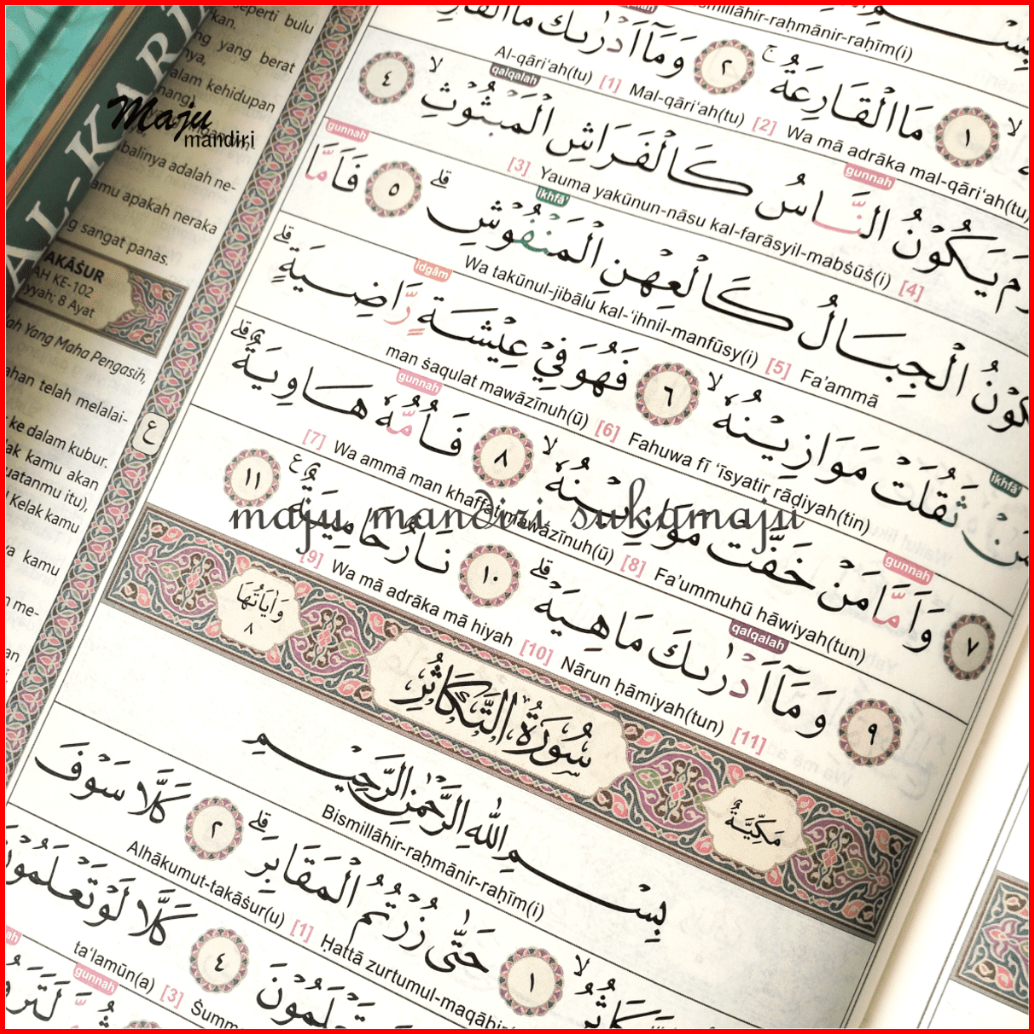 Maju
mandiri
AL-KARI
seperti bulu
yang berat
dalam kehidupan
balinya adalah ne-
kamu apakah neraka
sangat panas.
AKĀṠUR
KE-102
8 Ayat
Yang Maha Pengasih,
telah melalai-
ke dalam kubur.
kamu akan
Kelak kamu
kamu
Bismillāhir-raḥmānir-raḥīm(i)
١ مَا الْقَارِعَةُ ۚ ٢ وَمَآ اَدْرٰىكَ مَا الْقَارِعَةُ
Al-qāri‘ah(tu) [1] Mal-qāri‘ah(tu) [2] Wa mā adrāka mal-qāri‘ah(tu)
qalqalah
gunnah
يَكُوْنُ النَّاسُ كَالْفَرَاشِ الْمَبْثُوْثِ ۙ ٤
[3] Yauma yakūnun-nāsu kal-farāsyil-mabṡūṡ(i) [4]
gunnah
ikhfā'
الْجِبَالُ كَالْعِهْنِ الْمَنْفُوْشِ ۗ ٥ فَاَمَّا
Wa takūnul-jibālu kal-‘ihnil-manfūsy(i) [5] Fa'ammā
ikhfā'
idgām
ثَقُلَتْ مَوَازِيْنُهٗ ۙ ٦ فَهُوَ فِيْ عِيْشَةٍ رَّاضِيَةٍ ۗ
man ṡaqulat mawāzīnuh(ū) [6] Fahuwa fī ‘īsyatir rāḍiyah(tin)
gunnah
gunnah
٧ وَاَمَّا مَنْ خَفَّتْ مَوَازِيْنُهٗ ۙ ٨ فَاُمُّهٗ هَاوِيَةٌ ۗ
[7] Wa ammā man khaffat mawāzīnuh(ū) [8] Fa'ummuhū hāwiyah(tun)
maju mandiri sukamaju
qalqalah
٩ وَمَآ اَدْرٰىكَ مَا هِيَهْ ۗ ١٠ نَارٌ حَامِيَةٌ ࣖ ١١
[9] Wa mā adrāka mā hiyah [10] Nārun ḥāmiyah(tun) [11]
ع
مَكِّيَّةٌ سُوْرَةُ التَّكَاثُرِ وَاٰيَاتُهَا ٨
بِسْمِ اللّٰهِ الرَّحْمٰنِ الرَّحِيْمِ
Bismillāhir-raḥmānir-raḥīm(i)
١ حَتّٰى زُرْتُمُ الْمَقَابِرَ ۗ ٢ كَلَّا سَوْفَ
Alhākumut-takāṡur(u) [1] Ḥattā zurtumul-maqābir
تَعْلَمُوْنَ ٤ كَلَّا لَوْ تَعْلَمُوْنَ
ta‘lamūn(a) [3]
gunnah